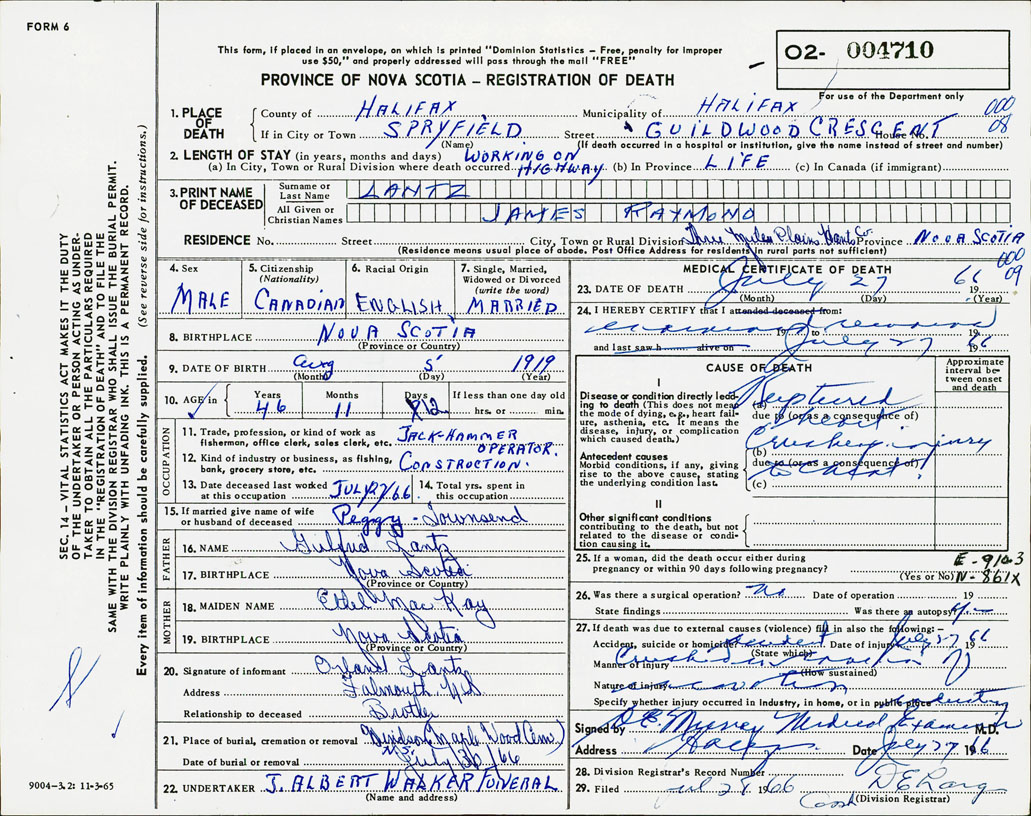 FORM 6
This form, if placed in an envelope, on which is printed "Dominion Statistics – Free, penalty for improper
use $50," and properly addressed will pass through the mail "FREE"
PROVINCE OF NOVA SCOTIA – REGISTRATION OF DEATH
O2- 004710
For use of the Department only
SEC. 14 – VITAL STATISTICS ACT MAKES IT THE DUTY
OF THE UNDERTAKER OR PERSON ACTING AS UNDER-
TAKER TO OBTAIN ALL THE PARTICULARS REQUIRED
IN THE "REGISTRATION OF DEATH" AND TO FILE THE
SAME WITH THE DIVISION REGISTRAR WHO SHALL ISSUE THE BURIAL PERMIT.
WRITE PLAINLY WITH UNFADING INK. THIS IS A PERMANENT RECORD.
Every item of information should be carefully supplied. (See reverse side for instructions.)
1. PLACE OF DEATH
County of HALIFAX Municipality of HALIFAX 000
If in City or Town SPRYFIELD Street GUILDWOOD CRESCENT House No. 08
(Name) (If death occurred in a hospital or institution, give the name instead of street and number)
2. LENGTH OF STAY (in years, months and days) WORKING ON
(a) In City, Town or Rural Division where death occurred HIGHWAY (b) In Province LIFE (c) In Canada (if immigrant)
3. PRINT NAME OF DECEASED
Surname or Last Name LANTZ
All Given or Christian Names JAMES RAYMOND
RESIDENCE No. Street City, Town or Rural Division Three Miles Plains Hants Co. Province NOVA SCOTIA
(Residence means usual place of abode. Post Office Address for residents in rural parts not sufficient)
000
09
4. Sex MALE
5. Citizenship (Nationality) CANADIAN
6. Racial Origin ENGLISH
7. Single, Married, Widowed or Divorced (write the word) MARRIED
8. BIRTHPLACE NOVA SCOTIA
(Province or Country)
9. DATE OF BIRTH Aug 5 1919
(Month) (Day) (Year)
10. AGE in Years 46 Months 11 Days 12 If less than one day old hrs. or min.
OCCUPATION
11. Trade, profession, or kind of work as fisherman, office clerk, sales clerk, etc. JACK-HAMMER OPERATOR.
12. Kind of industry or business, as fishing, bank, grocery store, etc. CONSTRUCTION.
13. Date deceased last worked at this occupation JULY 27/66
14. Total yrs. spent in this occupation
15. If married give name of wife or husband of deceased Peggy Townsend
FATHER
16. NAME Gilfrid Lantz
17. BIRTHPLACE Nova Scotia
(Province or Country)
MOTHER
18. MAIDEN NAME Ethel MacKay
19. BIRTHPLACE Nova Scotia
(Province or Country)
20. Signature of informant Lantz
Address Falmouth N.S.
Relationship to deceased Brother
21. Place of burial, cremation or removal Windsor Maplewood Cem) N.S.
Date of burial or removal July 30/66
22. UNDERTAKER J. ALBERT WALKER FUNERAL
(Name and address)
9004–3.2: 11-3-65
MEDICAL CERTIFICATE OF DEATH
23. DATE OF DEATH July 27 66
(Month) (Day) (Year)
24. I HEREBY CERTIFY that I attended deceased from:
19 to
and last saw h alive on July 27 1966
CAUSE OF DEATH
Approximate interval between onset and death
I
Disease or condition directly leading to death (This does not mean the mode of dying, e.g., heart failure, asthenia, etc. It means the disease, injury, or complication which caused death.)
(a) Ruptured heart
due to (or as a consequence of)
Antecedent causes
Morbid conditions, if any, giving rise to the above cause, stating the underlying condition last.
(b) Crushing injury
due to (or as a consequence of)
(c) to chest
II
Other significant conditions
contributing to the death, but not related to the disease or condition causing it.
25. If a woman, did the death occur either during pregnancy or within 90 days following pregnancy?
(Yes or No)
E-910-3
N-861X
26. Was there a surgical operation? No Date of operation 19
State findings Was there an autopsy?
27. If death was due to external causes (violence) fill in also the following:–
Accident, suicide or homicide accident Date of injury July 27 66
(State which)
Manner of injury
(How sustained)
Nature of injury
Specify whether injury occurred in industry, in home, or in public place industry
Signed by D.E. Murray Medical Examiner M.D.
Address Date July 27 1966
28. Division Registrar's Record Number
29. Filed Jul 29 1966
(Division Registrar)